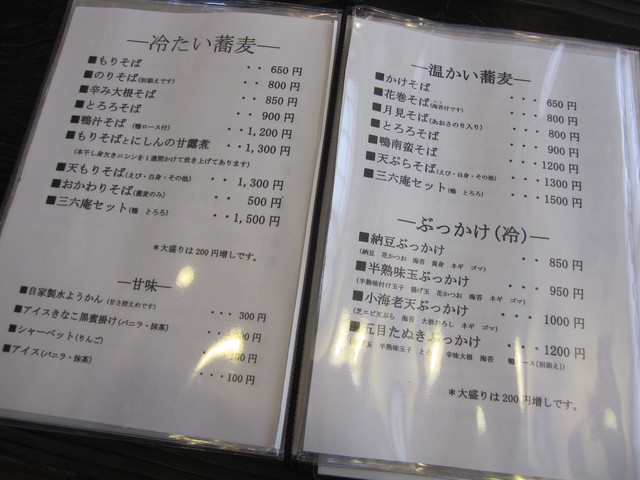 ―冷たい蕎麦―
■もりそば ・・ 650円
■のりそば(別添えです) ・・ 800円
■辛み大根そば ・・ 850円
■とろろそば ・・ 900円
■鴨汁そば (鴨ロース付) ・・ 1,200円
■もりそばとにしんの甘露煮 ・・ 1,300円
(本干し身欠きニシンを1週間かけて炊き上げてあります)
■天もりそば(えび・白身・その他) ・・ 1,300円
■おかわりそば(蕎麦のみ) ・・ 500円
■三六庵セット(鴨 とろろ) ・・ 1,500円
*大盛りは200円増しです。
―甘味―
■自家製水ようかん (甘さ控えめです) ・・・ 300円
■アイスきなこ黒蜜掛け(バニラ・抹茶) 円
■シャーベット(りんご) 円
■アイス(バニラ・抹茶) ・・・100円
―温かい蕎麦―
■かけそば ・・・ 650円
■花巻そば(海苔付です) ・・・ 800円
■月見そば(あおさのり入り) ・・・ 800円
■とろろそば ・・・ 900円
■鴨南蛮そば ・・・ 1200円
■天ぷらそば(えび・白身・その他) ・・・ 1300円
■三六庵セット(鴨 とろろ) ・・・ 1500円
―ぶっかけ(冷)―
■納豆ぶっかけ ・・ 850円
(納豆 花かつお 海苔 黄身 ネギ ゴマ)
■半熟味玉ぶっかけ ・・・ 950円
(半熟味付け玉子 揚げ玉 花かつお 海苔 ネギ ゴマ)
■小海老天ぶっかけ ・・・ 1000円
(芝エビ天ぷら 海苔 大根おろし ネギ ゴマ)
■五目たぬきぶっかけ ・・・ 1200円
半熟味玉子 辛味大根 海苔 鴨ロース[別添え])
*大盛りは200円増しです。